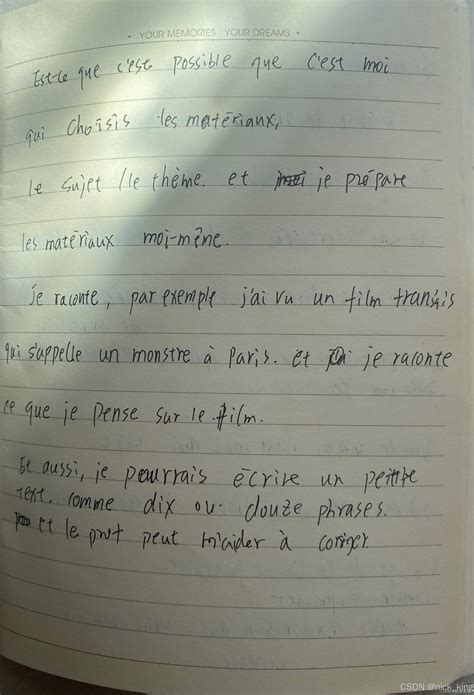 YOUR MEMORIES YOUR DREAMS
Est-ce que c'est possible que c'est moi
qui choisis les matériaux,
le sujet / le thème. et je prépare
les matériaux moi-même.
Je raconte, par exemple j'ai vu un film français
qui s'appelle un monstre à Paris. et je raconte
ce que je pense sur le film.
Et aussi, je pourrais écrire un petite
text. comme dix ou douze phrases.
et le prof peut m'aider à corriger.
CSDN @nick_king